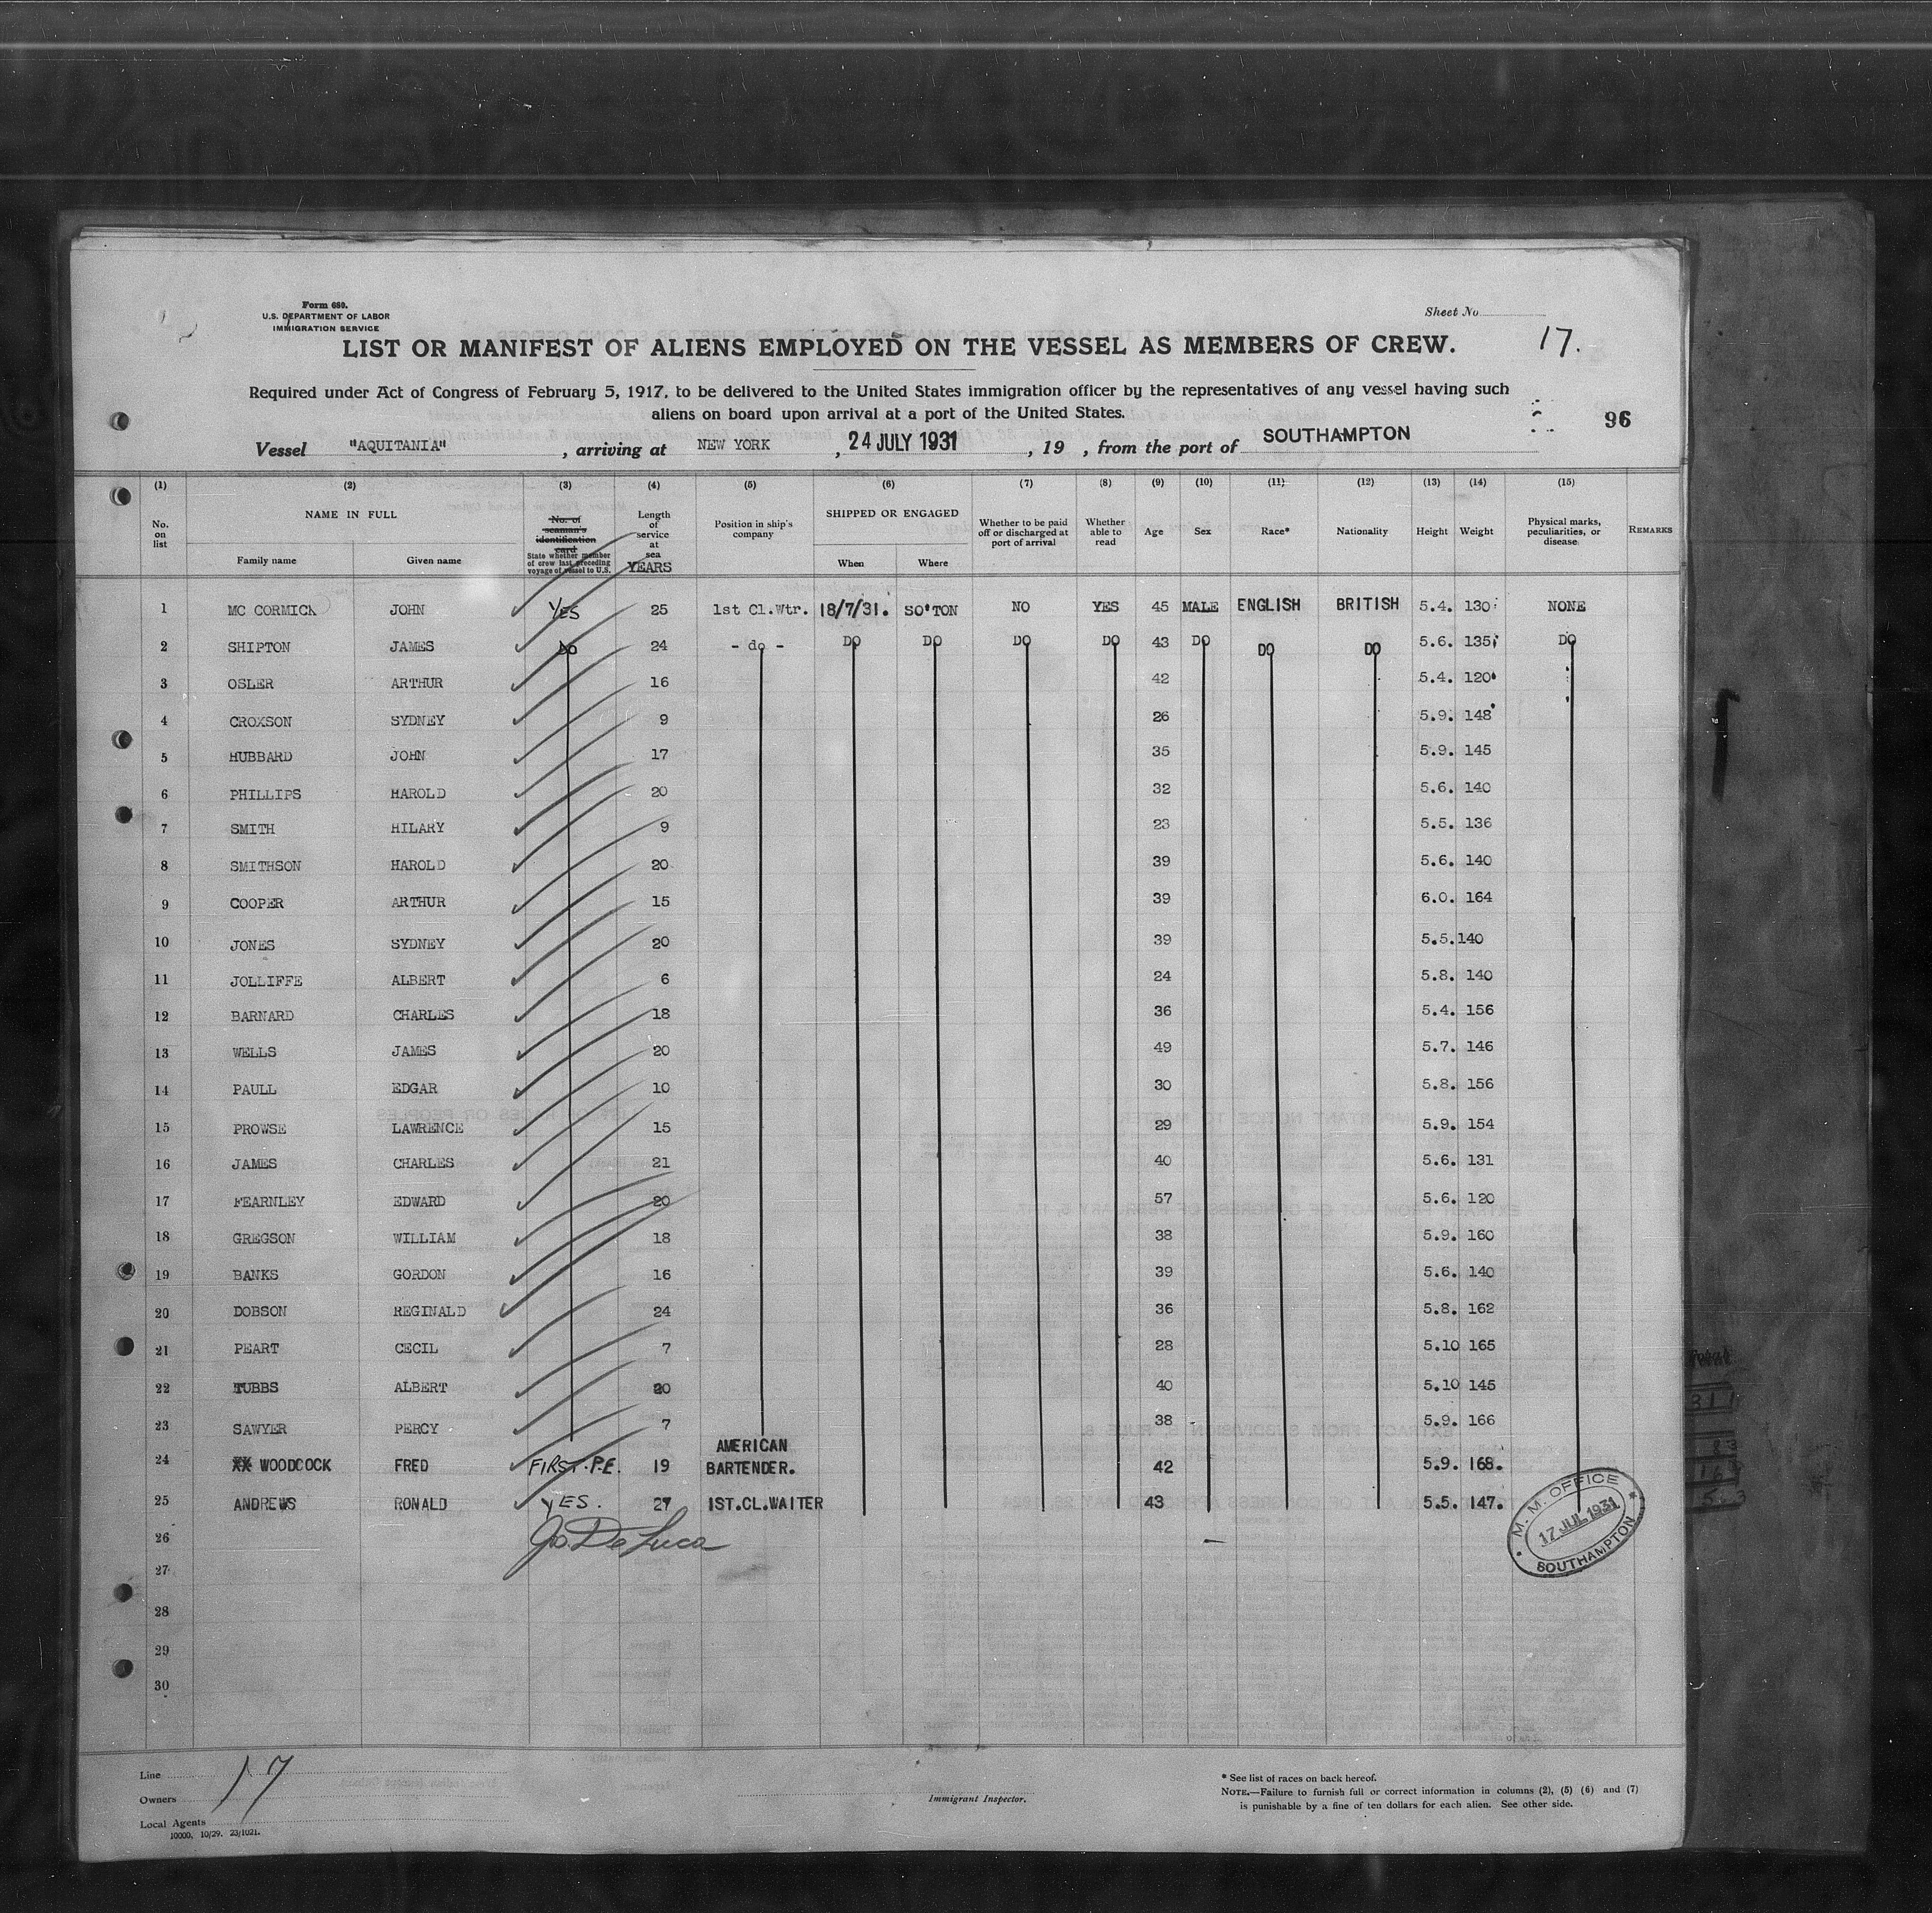 Form 680.
U.S. DEPARTMENT OF LABOR
IMMIGRATION SERVICE
Sheet No.
17.
LIST OR MANIFEST OF ALIENS EMPLOYED ON THE VESSEL AS MEMBERS OF CREW.
Required under Act of Congress of February 5, 1917, to be delivered to the United States immigration officer by the representatives of any vessel having such
aliens on board upon arrival at a port of the United States.
96
Vessel "AQUITANIA", arriving at NEW YORK, 24 JULY 1931, 19 , from the port of SOUTHAMPTON
(1) (2) (3) (4) (5) (6) (7) (8) (9) (10) (11) (12) (13) (14) (15)
No. on list
NAME IN FULL
Family name Given name
No. of seaman's identification card
State whether member of crew last preceding voyage of vessel to U.S.
Length of service at sea YEARS
Position in ship's company
SHIPPED OR ENGAGED
When Where
Whether to be paid off or discharged at port of arrival
Whether able to read
Age Sex Race* Nationality Height Weight
Physical marks, peculiarities, or disease
REMARKS
1 MC CORMICK JOHN YES 25 1st Cl.Wtr. 18/7/31. SO'TON NO YES 45 MALE ENGLISH BRITISH 5.4. 130 NONE
2 SHIPTON JAMES DO 24 - do - DO DO DO DO 43 DO DO DO 5.6. 135 DO
3 OSLER ARTHUR 16 42 5.4. 120
4 CROXSON SYDNEY 9 26 5.9. 148
5 HUBBARD JOHN 17 35 5.9. 145
6 PHILLIPS HAROLD 20 32 5.6. 140
7 SMITH HILARY 9 23 5.5. 136
8 SMITHSON HAROLD 20 39 5.6. 140
9 COOPER ARTHUR 15 39 6.0. 164
10 JONES SYDNEY 20 39 5.5. 140
11 JOLLIFFE ALBERT 6 24 5.8. 140
12 BARNARD CHARLES 18 36 5.4. 156
13 WELLS JAMES 20 49 5.7. 146
14 PAULL EDGAR 10 30 5.8. 156
15 PROWSE LAWRENCE 15 29 5.9. 154
16 JAMES CHARLES 21 40 5.6. 131
17 FEARNLEY EDWARD 20 57 5.6. 120
18 GREGSON WILLIAM 18 38 5.9. 160
19 BANKS GORDON 16 39 5.6. 140
20 DOBSON REGINALD 24 36 5.8. 162
21 PEART CECIL 7 28 5.10 165
22 TUBBS ALBERT 20 40 5.10 145
23 SAWYER PERCY 7 38 5.9. 166
24 WOODCOCK FRED FIRST.P.E. 19 AMERICAN BARTENDER. 42 5.9. 168.
25 ANDREWS RONALD YES. 27 1ST.CL.WAITER 43 5.5. 147.
26
Jo. De Luca
27
28
29
30
M. M. OFFICE
17 JUL 1931
SOUTHAMPTON
Line
17
Owners
Local Agents
10000. 10/29. 23/1021.
Immigrant Inspector.
* See list of races on back hereof.
NOTE.—Failure to furnish full or correct information in columns (2), (5) (6) and (7)
is punishable by a fine of ten dollars for each alien. See other side.